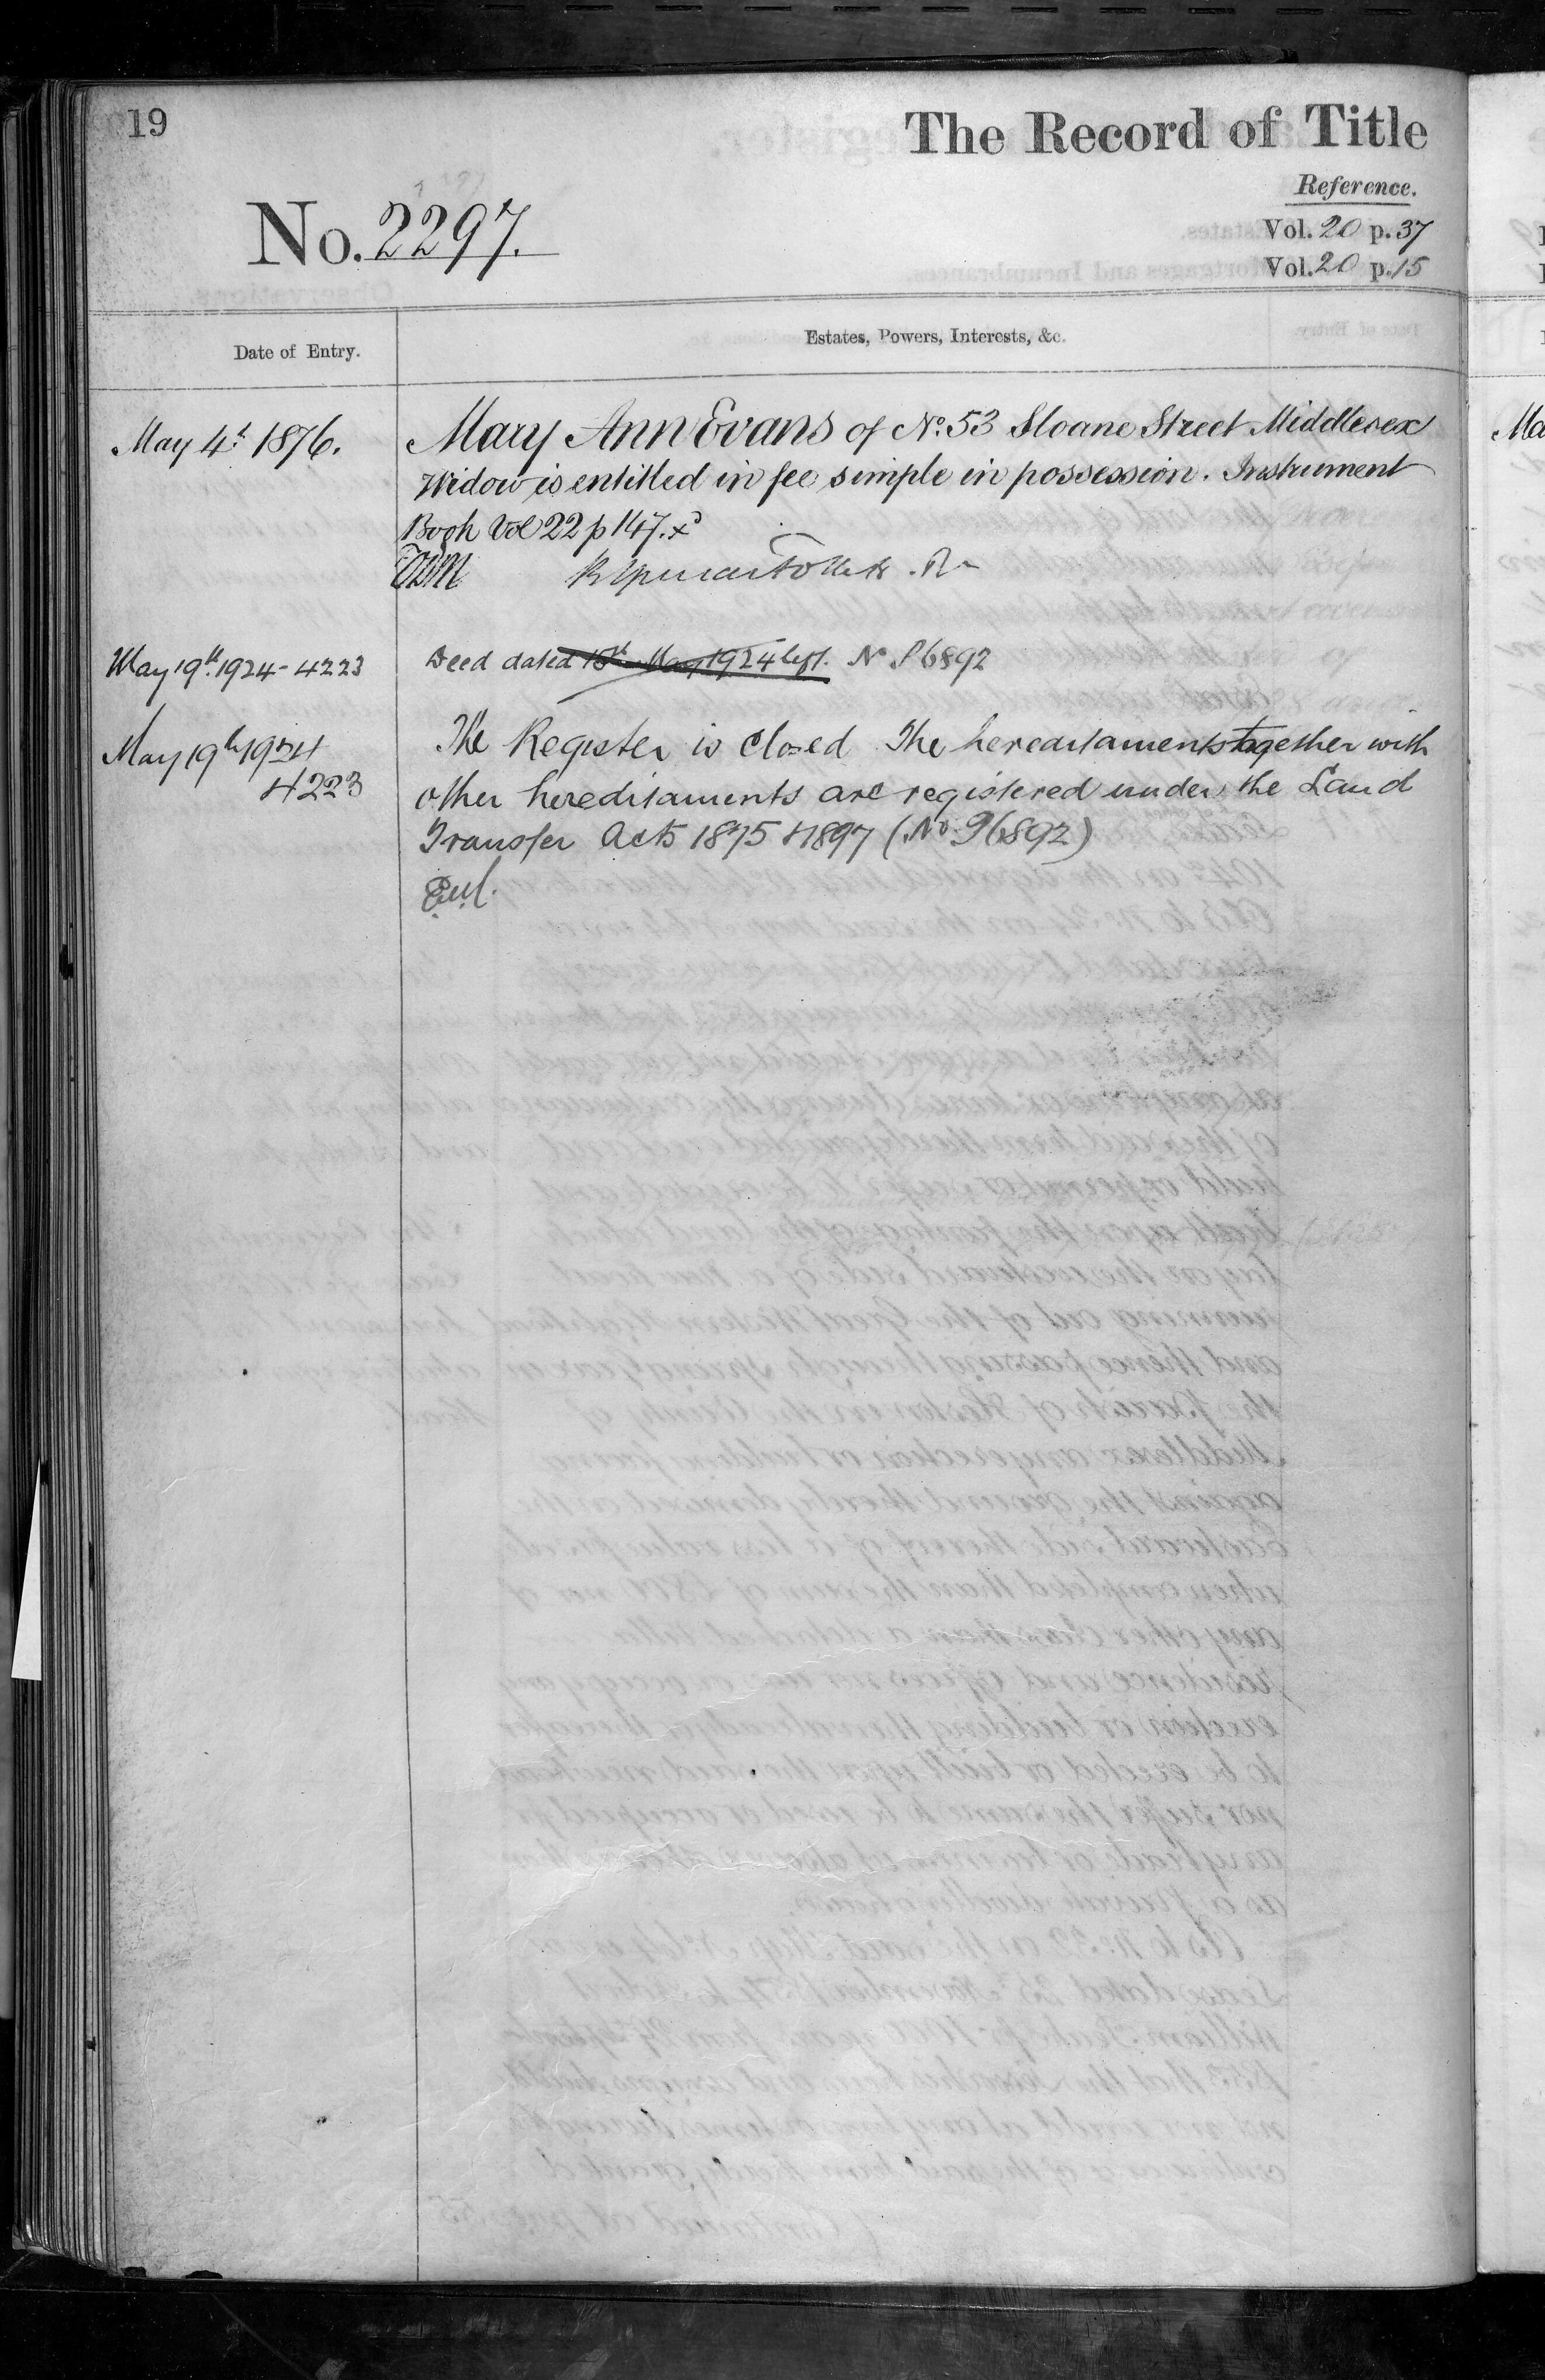 19
The Record of Title
Reference.
No. 2297.
Vol. 20 p. 37
Vol. 20 p. 15
Date of Entry.
Estates, Powers, Interests, &c.
May 4th 1876.
Mary Ann Evans of No. 53 Sloane Street Middlesex
Widow is entitled in fee simple in possession. Instrument
Book Vol 22 p 147.
May 19th 1924 - 4223
Deed dated 15th May 1924 left. No P6892
May 19th 1924
4223
The Register is closed The hereditaments together with
other hereditaments are registered under the Land
Transfer Acts 1875 & 1897 (No. P6892)